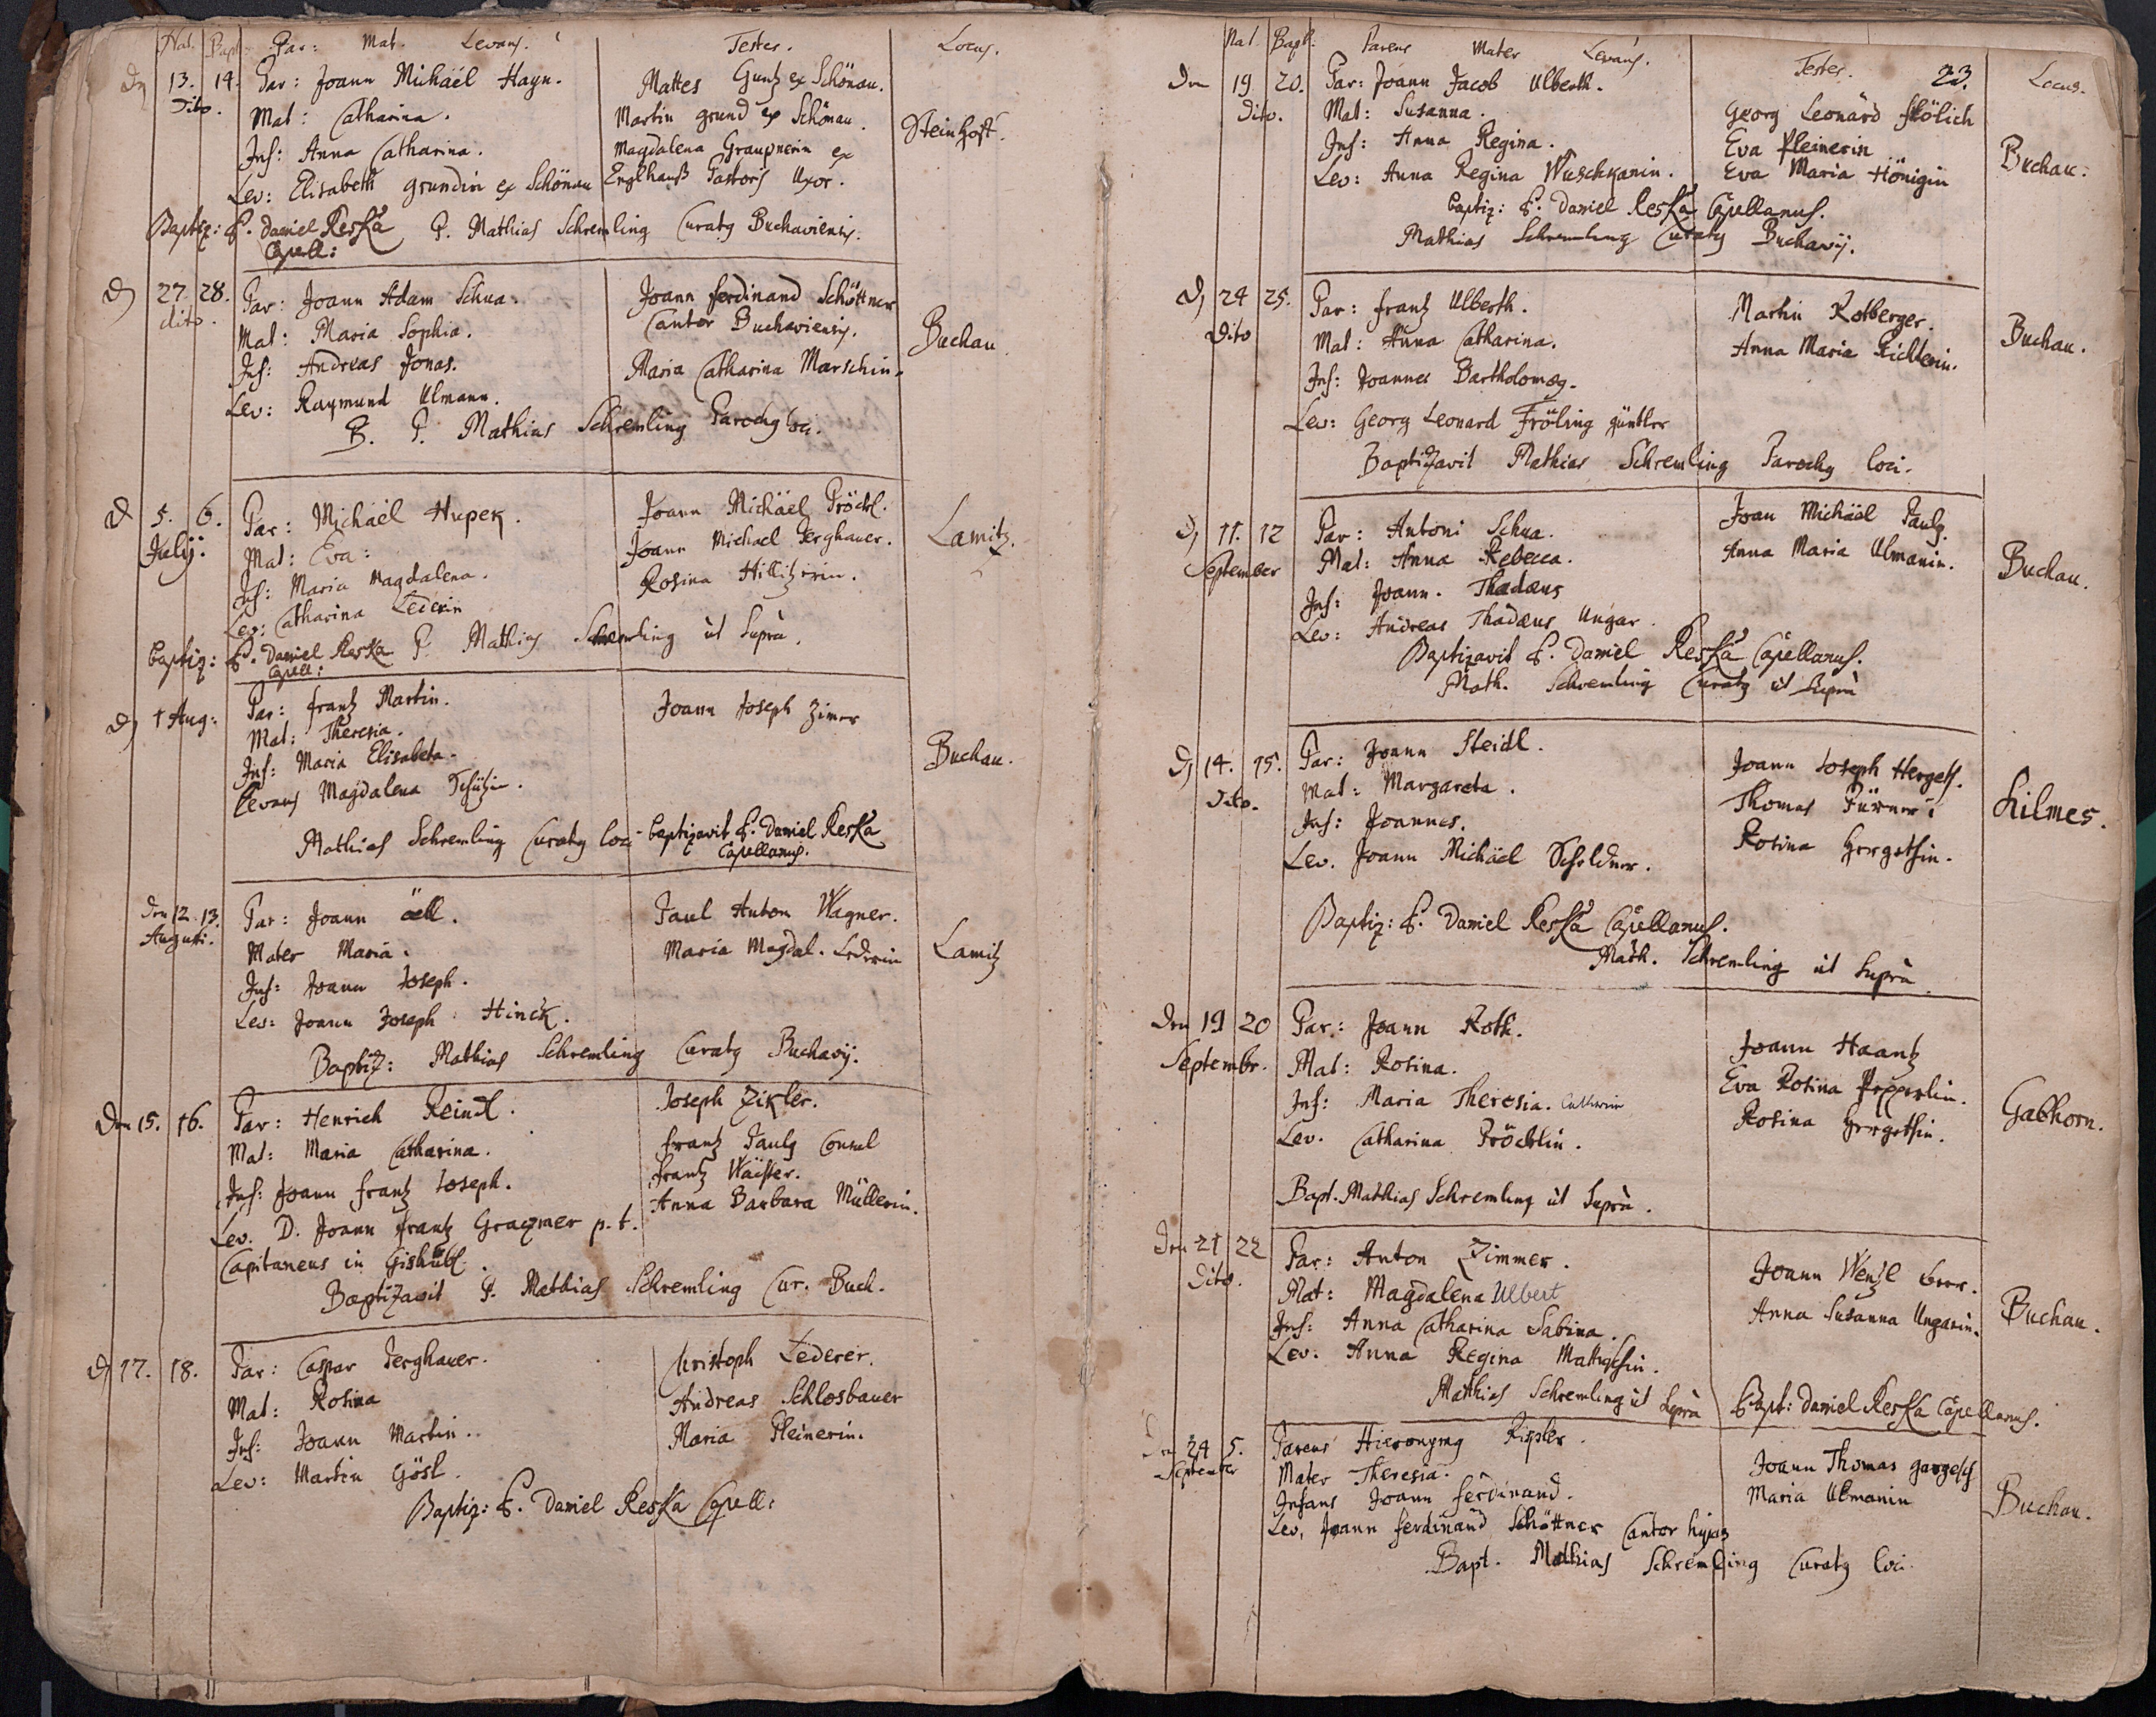 Nat. Bapt. Par: Mat. Levans. Testes. Locus.
Den 13. 14. Par: Joann Michäel Hayn. Mattes Guntz ex Schönau.
Dito. Mat: Catharina. Martin grund ex Schönau. Steinhoff.
Inf: Anna Catharina. Magdalena Graupnerin ex
Lev: Elisabeth grundin ex Schönau Englhauß Pastoris Uxor.
Baptiz: P. Daniel Reska P. Mathias Schremling Curatq Buchaviensis.
Capell:
D 27. 28. Par: Joann Adam Schua. Joann ferdinand Schöttner
dito. Mat: Maria Sophia. Cantor Buchaviensis. Buchau
Inf: Andreas Jonas. Maria Catharina Marschin.
Lev: Raymund Ulmann.
B. P. Mathias Schremling Parochq loci.
D 5. 6. Par: Michäel Hupek. Joann Michäel Pröckl.
Julij. Mat: Eva: Joann Michael Jerghauer. Lamitz.
Inf: Maria Magdalena. Rosina Hillitzerin.
Lev: Catharina Lederin
Baptiz: P. Daniel Reska P. Mathias Schremling ut supra.
Capell:
D 1 Aug: Par: frantz Martin. Joann Joseph Zimer
Mat: Theresia.
Inf: Maria Elisabeta. Buchau.
Levans Magdalena Schützin.
Mathias Schremling Curatq loci baptizavit P. Daniel Reska
Capellanus.
Den 12. 13. Par: Joann äell. Paul Anton Wagner.
Augusti. Mater Maria. Maria Magdal. Lederin Lamitz
Inf: Joann Joseph.
Lev: Joann Joseph Hinck.
Baptiz: Mathias Schremling Curatq Buchavij.
Den 15. 16. Par: Henrich Reindl. Joseph Zikler.
Mat: Maria Catharina. frantz Paulq Consul
Inf: Joann frantz Joseph. frantz Wäister.
Lev. D. Joann frantz Graqmer p. t. Anna Barbara Müllerin.
Capitaneus in Gishübl.
Baptizavit P. Mathias Schremling Cur. Buch.
D 17. 18. Par: Caspar Jerghauer. Christoph Lederer.
Mat: Rosina Andreas Schlosbauer
Inf: Joann Martin. Maria Pleinerin.
Lev: Martin Gösl.
Baptiz: P. Daniel Reska Capell:
Nat Bapt. Parens Mater Levans. Testes. 23. Locus.
Den 19 20. Par: Joann Jacob Ulberth. Georg Leonard frölich
Dito. Mat: Susanna. Eva Pleinerin
Inf: Anna Regina. Eva Maria Hönigin Buchau.
Lev: Anna Regina Wuschkanin.
baptiz: P. Daniel Reska Capellanus.
Mathias Schremling Curatq Buchavij.
D 24 25. Par: frantz Ulberth. Martin Rotberger.
Dito Mat: Anna Catharina. Anna Maria Richterin. Buchau.
Inf: Joannes Bartholomæq.
Lev: Georg Leonard Fröling güntler
Baptizavit Mathias Schremling Parochq loci.
D 11. 12 Par: Antoni Schua. Joan Michäel Paulq.
September Mat: Anna Rebecca. Anna Maria Ulmanin. Buchau.
Inf: Joann. Thadæus
Lev: Andreas Thadæus Ungar.
Baptizavit P. Daniel Reska Capellanus.
Math. Schremling Curatq ut supra
D 14. 15. Par: Joann Steidl. Joann Joseph Hergets.
Dito. Mat: Margareta. Thomas Pürner Kilmes.
Inf: Joannes. Rosina Hergetsin.
Lev. Joann Michäel Scheldner.
Baptiz: P. Daniel Reska Capellanus.
Math. Schremling ut supra
Den 19 20 Par: Joann Roth. Joann Haantz
Septembr. Mat: Rosina. Eva Rosina Pepperlin.
Inf: Maria Theresia. Catharina Rosina Hergetsin. Gabhorn.
Lev. Catharina Pröcktlin.
Bapt. Mathias Schremling ut supra.
Den 21 22 Par: Anton Zimmer. Joann Wenzl beer.
Dito. Mat: Magdalena Ulbert Anna Susanna Ungarin. Buchau.
Inf: Anna Catharina Sabina.
Lev: Anna Regina Mattigtsin.
Mathias Schremling ut supra Bapt: Daniel Reska Capellanus.
Den 24 5. Parens Hieronymq Rippler. Joann Thomas gargesch
September Mater Theresia. Maria Ulmanin
Infans Joann ferdinand. Buchau.
Lev. Joann ferdinand Schöttner Cantor hujatis
Bapt. Mathias Schremling Curatq loci